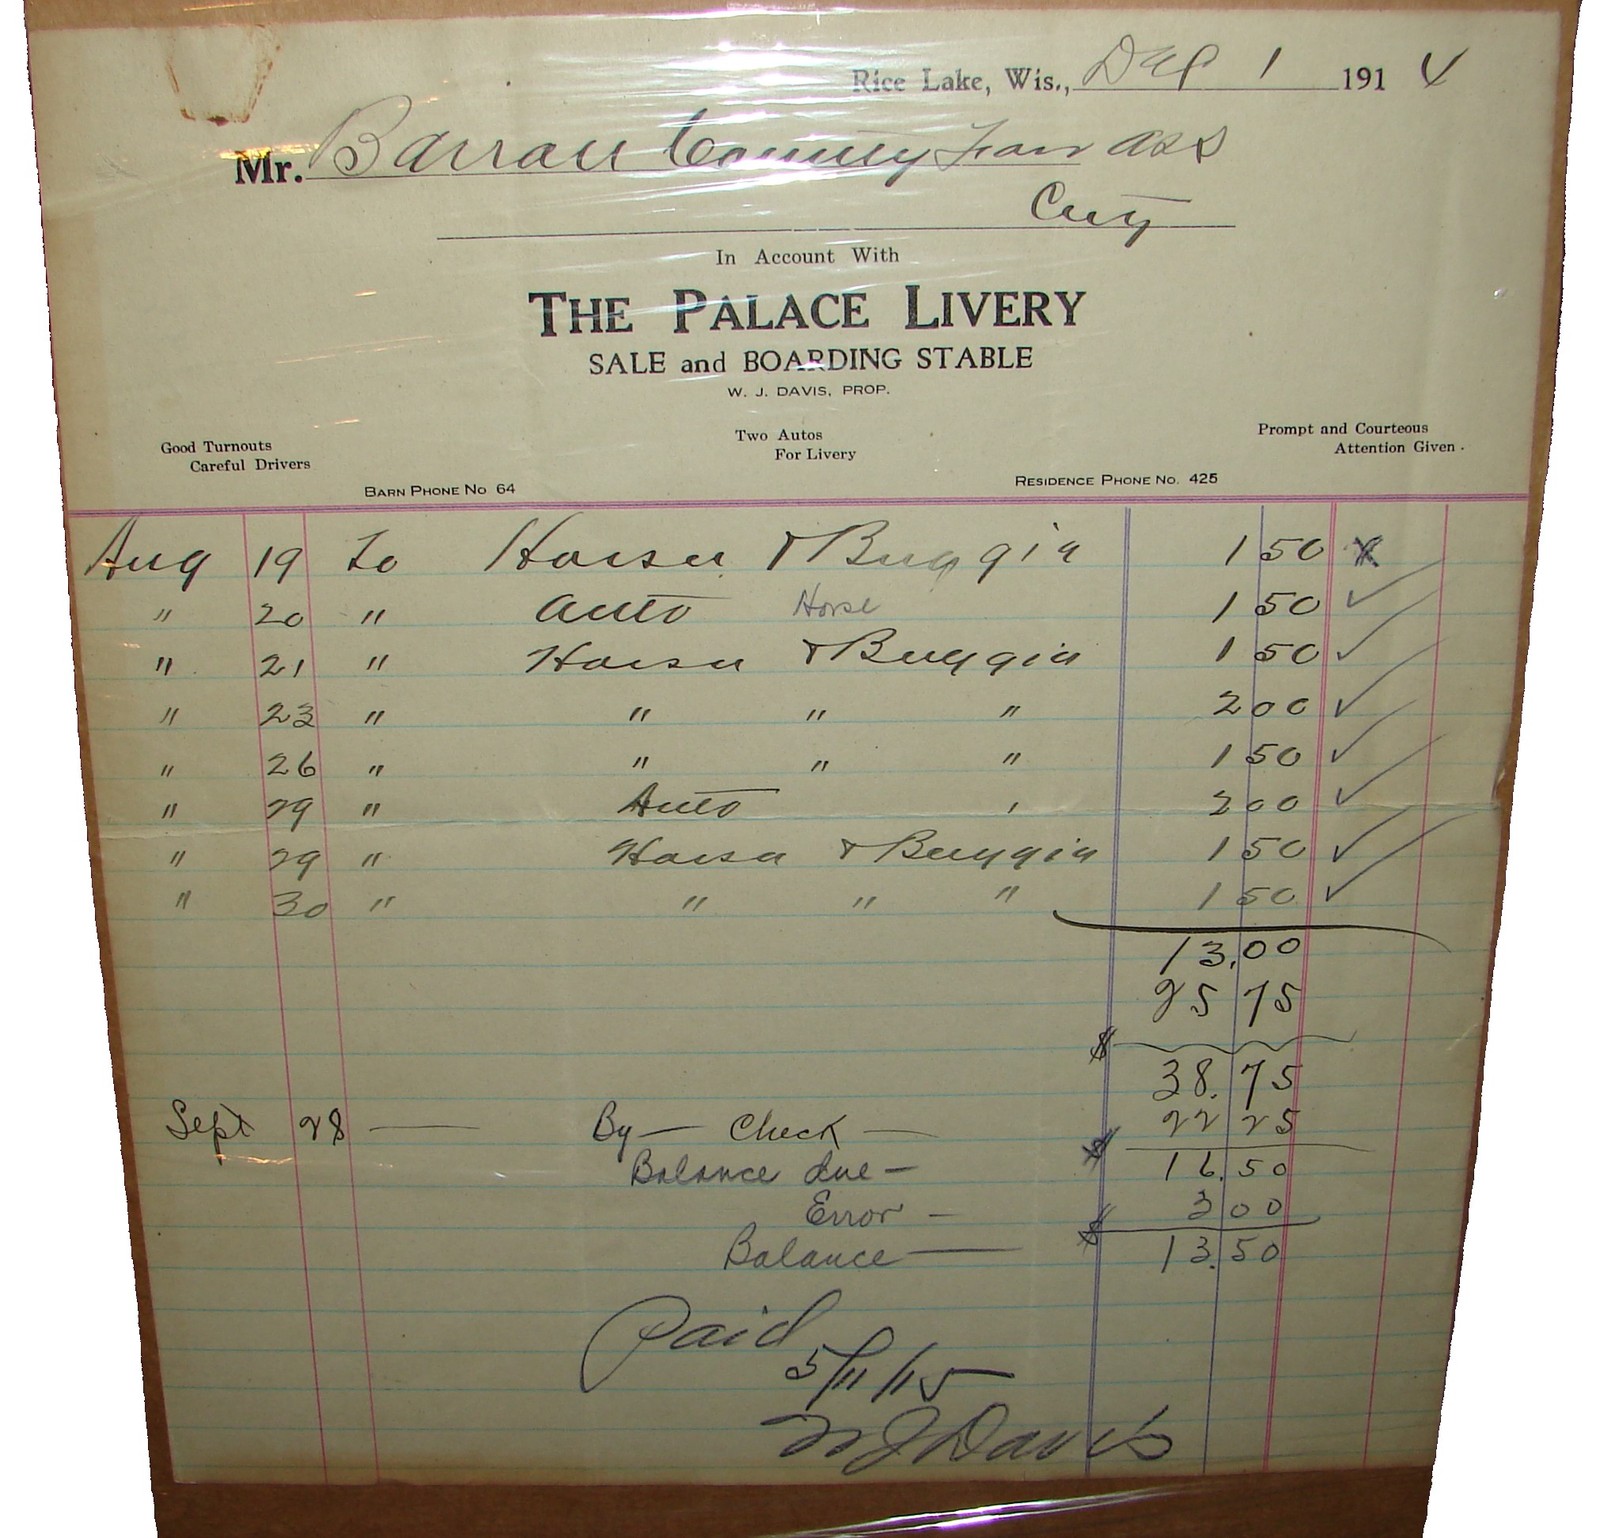 Rice Lake, Wis., Dec 1 1914
Mr. Barron County Fair Ass
City
In Account With
THE PALACE LIVERY
SALE and BOARDING STABLE
W. J. DAVIS, PROP.
Good Turnouts
Careful Drivers
Two Autos
For Livery
Prompt and Courteous
Attention Given.
BARN PHONE No 64
RESIDENCE PHONE NO. 425
Aug 19 To Horse & Buggie 1 50 x
" 20 " Auto Horse 1 50 ✓
" 21 " Horse & Buggie 1 50 ✓
" 23 " " " " 2 00 ✓
" 26 " " " " 1 50 ✓
" 29 " Auto 2 00 ✓
" 29 " Horse & Buggie 1 50 ✓
" 30 " " " " 1 50 ✓
13.00
25 75
$ 38.75
Sept 28 — By — Check — 22 25
Balance due — $ 16.50
Error — 3 00
Balance — $ 13.50
Paid
5/11/15
W J Davis